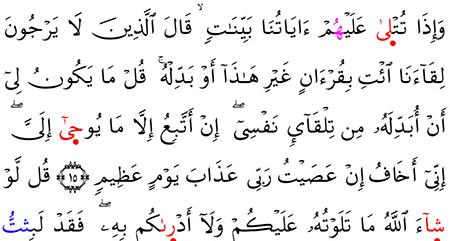 وَإِذَا تُتْلَىٰ عَلَيْهِمْ ءَايَاتُنَا بَيِّنَاتٍ ۙ قَالَ ٱلَّذِينَ لَا يَرْجُونَ
لِقَآءَنَا ٱئْتِ بِقُرْءَانٍ غَيْرِ هَـٰذَآ أَوْ بَدِّلْهُ ۚ قُلْ مَا يَكُونُ لِىٓ
أَنْ أُبَدِّلَهُۥ مِن تِلْقَآئِ نَفْسِىٓ ۖ إِنْ أَتَّبِعُ إِلَّا مَا يُوحَىٰٓ إِلَىَّ ۖ
إِنِّىٓ أَخَافُ إِنْ عَصَيْتُ رَبِّى عَذَابَ يَوْمٍ عَظِيمٍ ۝١٥ قُل لَّوْ
شَآءَ ٱللَّهُ مَا تَلَوْتُهُۥ عَلَيْكُمْ وَلَآ أَدْرَىٰكُم بِهِۦ ۖ فَقَدْ لَبِثتُّ